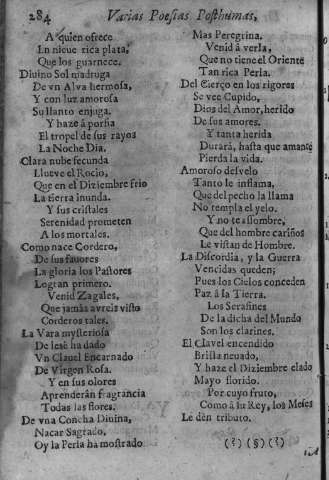 284 Varias Poesias Posthumas,
A quien ofrece
En nieve rica plata,
Que los guarnece.
Divino Sol madruga
De vn Alva hermosa,
Y con luz amorosa
Su llanto enjuga.
Y haze à porfia
El tropel de sus rayos
La Noche Dia.
Clara nube fecunda
Llueve el Rocio,
Que en el Diziembre frio
La tierra inunda.
Y sus cristales
Serenidad prometen
A los mortales.
Como nace Cordero,
De sus favores
La gloria los Pastores
Logran primero.
Venid Zagales,
Que jamàs avreis visto
Corderos tales.
La Vara mysteriosa
De Iesè ha dado
Vn Clavel Encarnado
De Virgen Rosa.
Y en sus olores
Aprenderàn fragrancia
Todas las flores.
De vna Concha Divina,
Nacar Sagrado,
Oy la Perla ha mostrado
Mas Peregrina.
Venid à verla,
Que no tiene el Oriente
Tan rica Perla.
Del Cierço en los rigores
Se vee Cupido,
Dios del Amor, herido
De sus amores.
Y tanta herida
Durarà, hasta que amante
Pierda la vida.
Amoroso desvelo
Tanto le inflama,
Que del pecho la llama
No templa el yelo.
Y no te assombre,
Que del hombre cariños
Le vistan de Hombre.
La Discordia, y la Guerra
Vencidas queden;
Pues los Cielos conceden
Paz à la Tierra.
Los Serafines
De la dicha del Mundo
Son los clarines.
El Clavel encendido
Brilla nevado,
Y haze el Diziembre elado
Mayo florido.
Por cuyo fruto,
Como à su Rey, los Meses
Le dèn tributo.
(?) (§) (?)